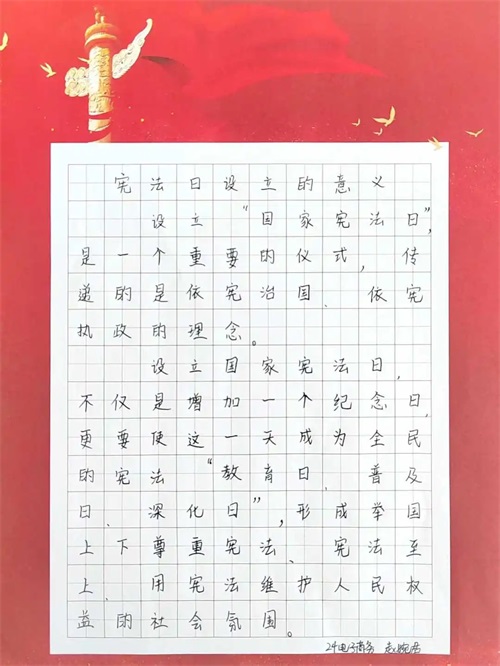 宪法日设立的意义
设立“国家宪法日”，
是一个重要的仪式，传
递的是依宪治国、依宪
执政的理念。
设立国家宪法日，
不仅是增加一个纪念日，
更要使这一天成为全民
的宪法“教育日、普及
日、深化日”，形成举国
上下尊重宪法、宪法至
上、用宪法维护人民权
益的社会氛围。
24电子商务 赵婉君